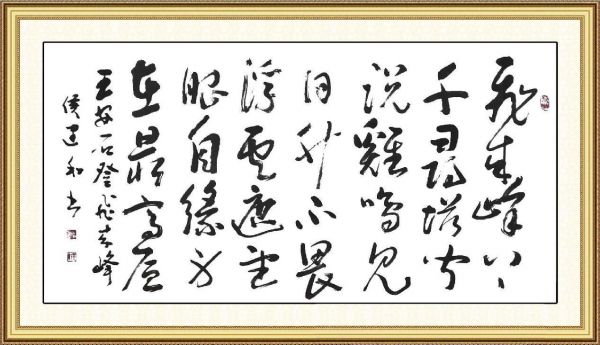 飛来峰上
千尋塔聞
説雞鳴見
日升不畏
浮雲遮望
眼自緣身
在最高層
王安石登飛来峰
侯 和书